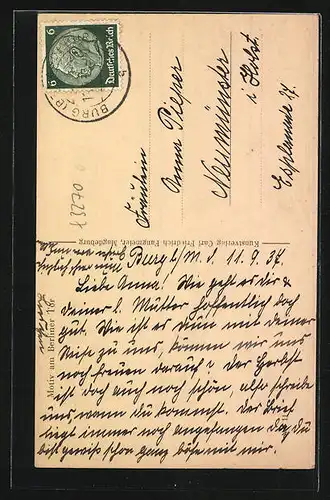 6 Deutsches Reich 6
BURG
Fräulein
Anna Pieper
Neumünster
i. Holst.
Esplanade 17.
73270
Kunstverlag Carl Friedrich Fangmeier, Magdeburg
Motiv am Berliner Tor
Burg b/M. d. 11. 9. 37.
Liebe Anna! Wie geht es dir &
deiner l. Mutter hoffentlich doch
gut. Wie ist es nun mit deiner
Reise zu uns, können wir uns
noch freuen darauf? Der Herbst
ist doch auch noch schön, also schreibe
uns wann du kommst. Der Brief
liegt immer noch angefangen da, du
bist gewiß schon ganz böse mit mir.